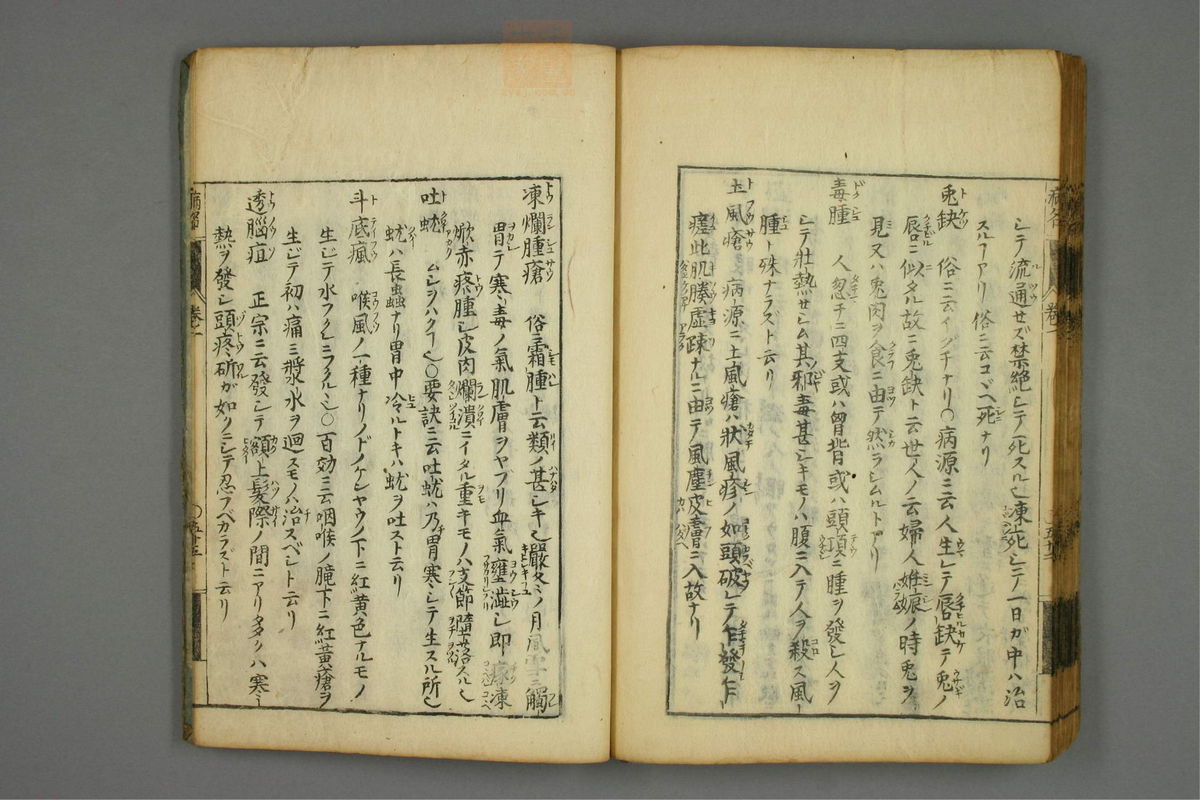 シテ流通セズ禁絶シテ死スル也凍死シテ一日ガ中ハ治
スルアリ俗ニ云コヾヘ死ナリ
兎缺 俗ニ云イグチナリ〇病源ニ云人生レテ唇缺テ兎ノ
唇ニ似タル故ニ兎缺ト云世人ノ云婦人妊娠ノ時兎ヲ
見又ハ兎肉ヲ食ニ由テ然ラシムルトアリ
毒腫 人忽チニ四支或ハ胷背或ハ頭項ニ腫ヲ發シ人ヲ
シテ壮熱セシム其邪毒甚シキモノハ腹ニ入テ人ヲ殺ス風
腫ト殊ナラズト云リ
土風瘡 病源ニ土風瘡ハ狀風疹ノ如頭破レテ乍發乍
瘥此肌腠虚疎ナルニ由テ風塵皮膚ニ入故ナリ
凍爛腫瘡 俗ニ霜腫ト云類ノ甚シキ也嚴冬ノ月風雪ニ觸
冐テ寒毒ノ氣肌膚ヲヤブリ血氣壅澁シ即瘃凍
焮赤疼腫シ皮肉爛潰ニイタル重キモノハ支節墮落スル也
吐蚘 ムシヲハク也〇要訣ニ云吐蚘ハ乃胃寒シテ生スル所也
蚘ハ長蟲ナリ胃中冷ルトキハ蚘ヲ吐スト云リ
斗底風 喉風ノ一種ナリノドノケシヤウノ下ニ紅黄色ナルモノ
生ジテ水フクレニフクルヽ也〇百効ニ云咽喉ノ下ニ紅黄瘡ヲ
生ジテ初ハ痛ミ漿水ヲ迴スモノハ治スベシト云リ
透腦疽 正宗ニ云發シテ額上髮際ノ間ニアリ多クハ寒ミ
熱ヲ發シ頭疼斫ガ如クニシテ忍フベカラズト云リ
卷二